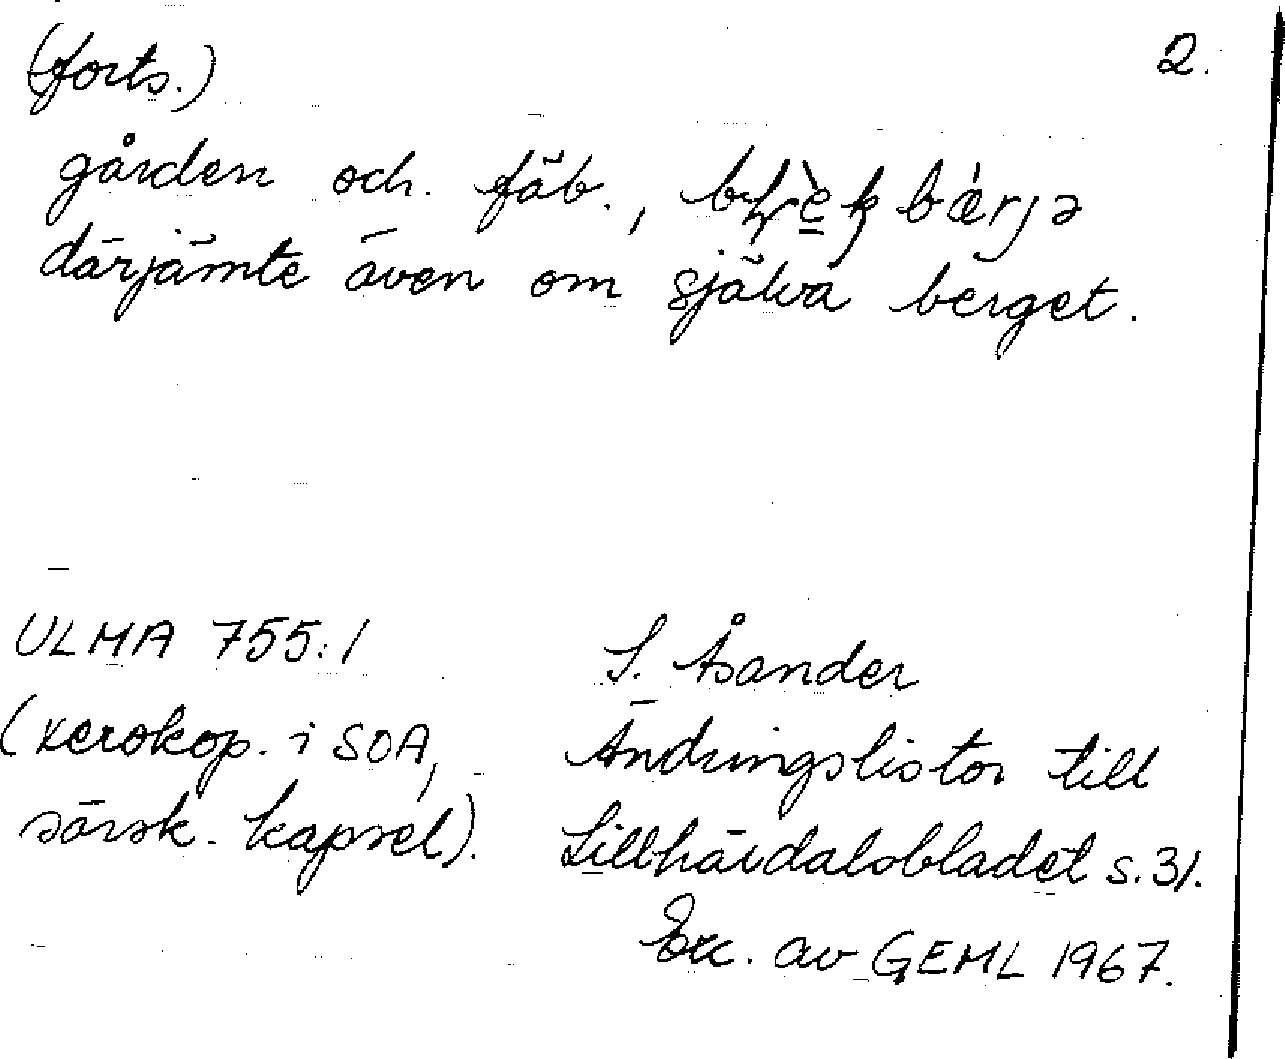 (forts.) 2.
gården och fäb.,
därjämte även om själva berget.
ULMA 755:1
S. Åsander
(xerokop. i SOA,
Ändringslistor till
särsk. kapsel).
Lillhärdalsbladet s. 31.
Exc. av GEML 1967.